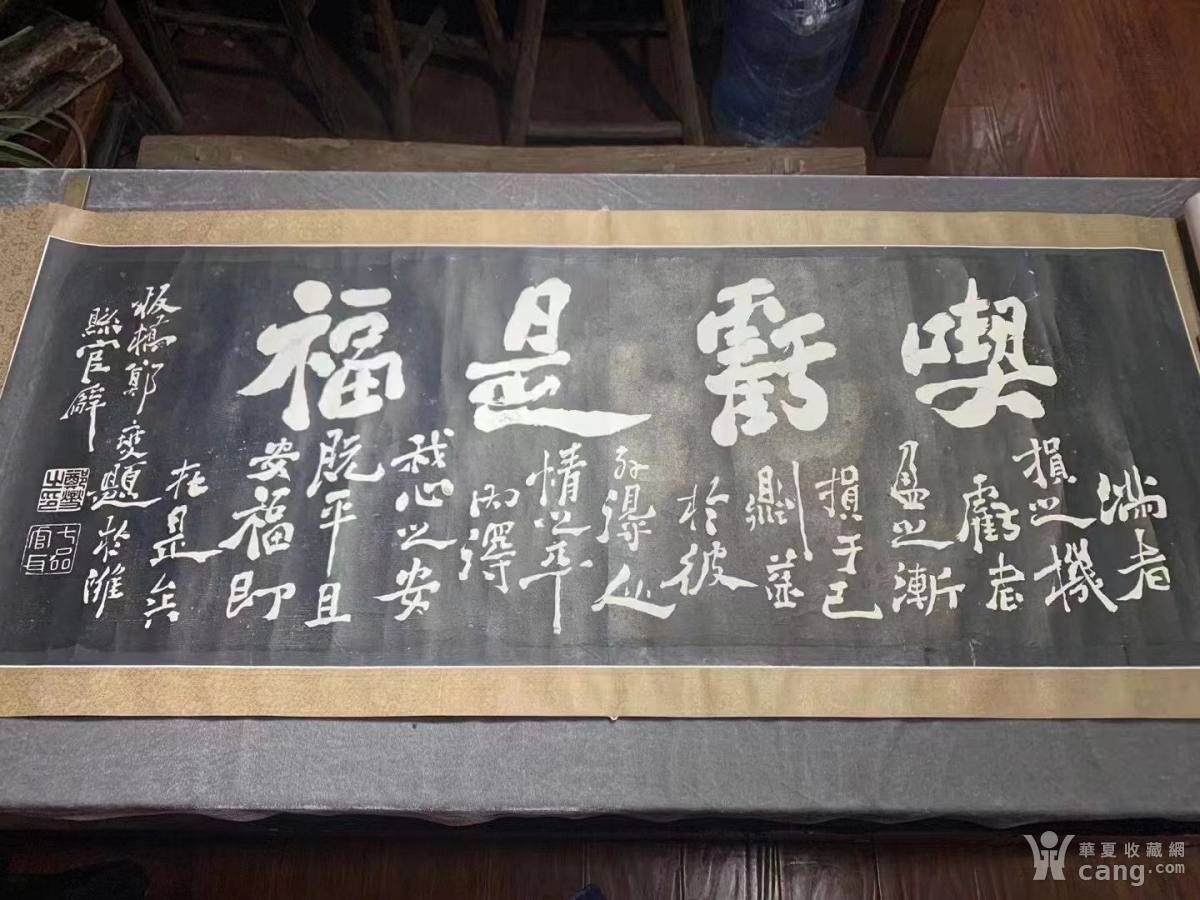 喫虧是福
滿者
損之機
虧者
盈之漸
損于己
則益
於彼
外得人
情之平
內得
我心之安
既平且
安福即
在是矣
板橋鄭燮題於濰
縣官廨
鄭燮之印
七品官耳
華夏收藏網
cang.com